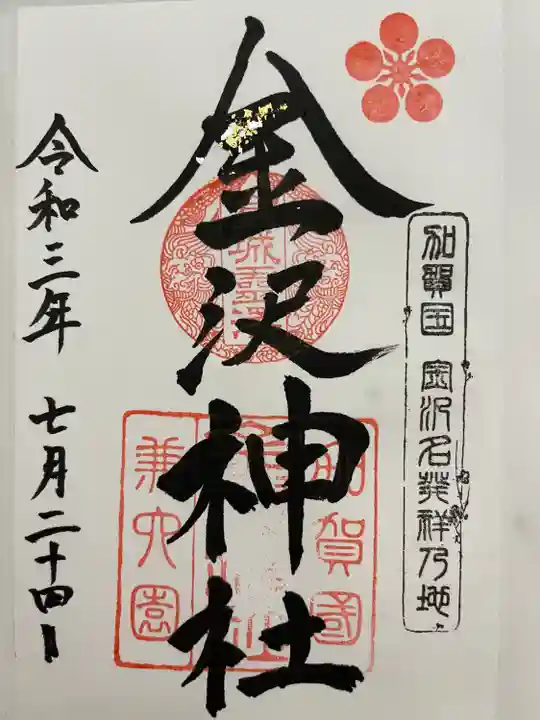 加賀国 金沢名発祥乃地
金沢神社
加賀國
兼六園
令和三年 七月二十四日